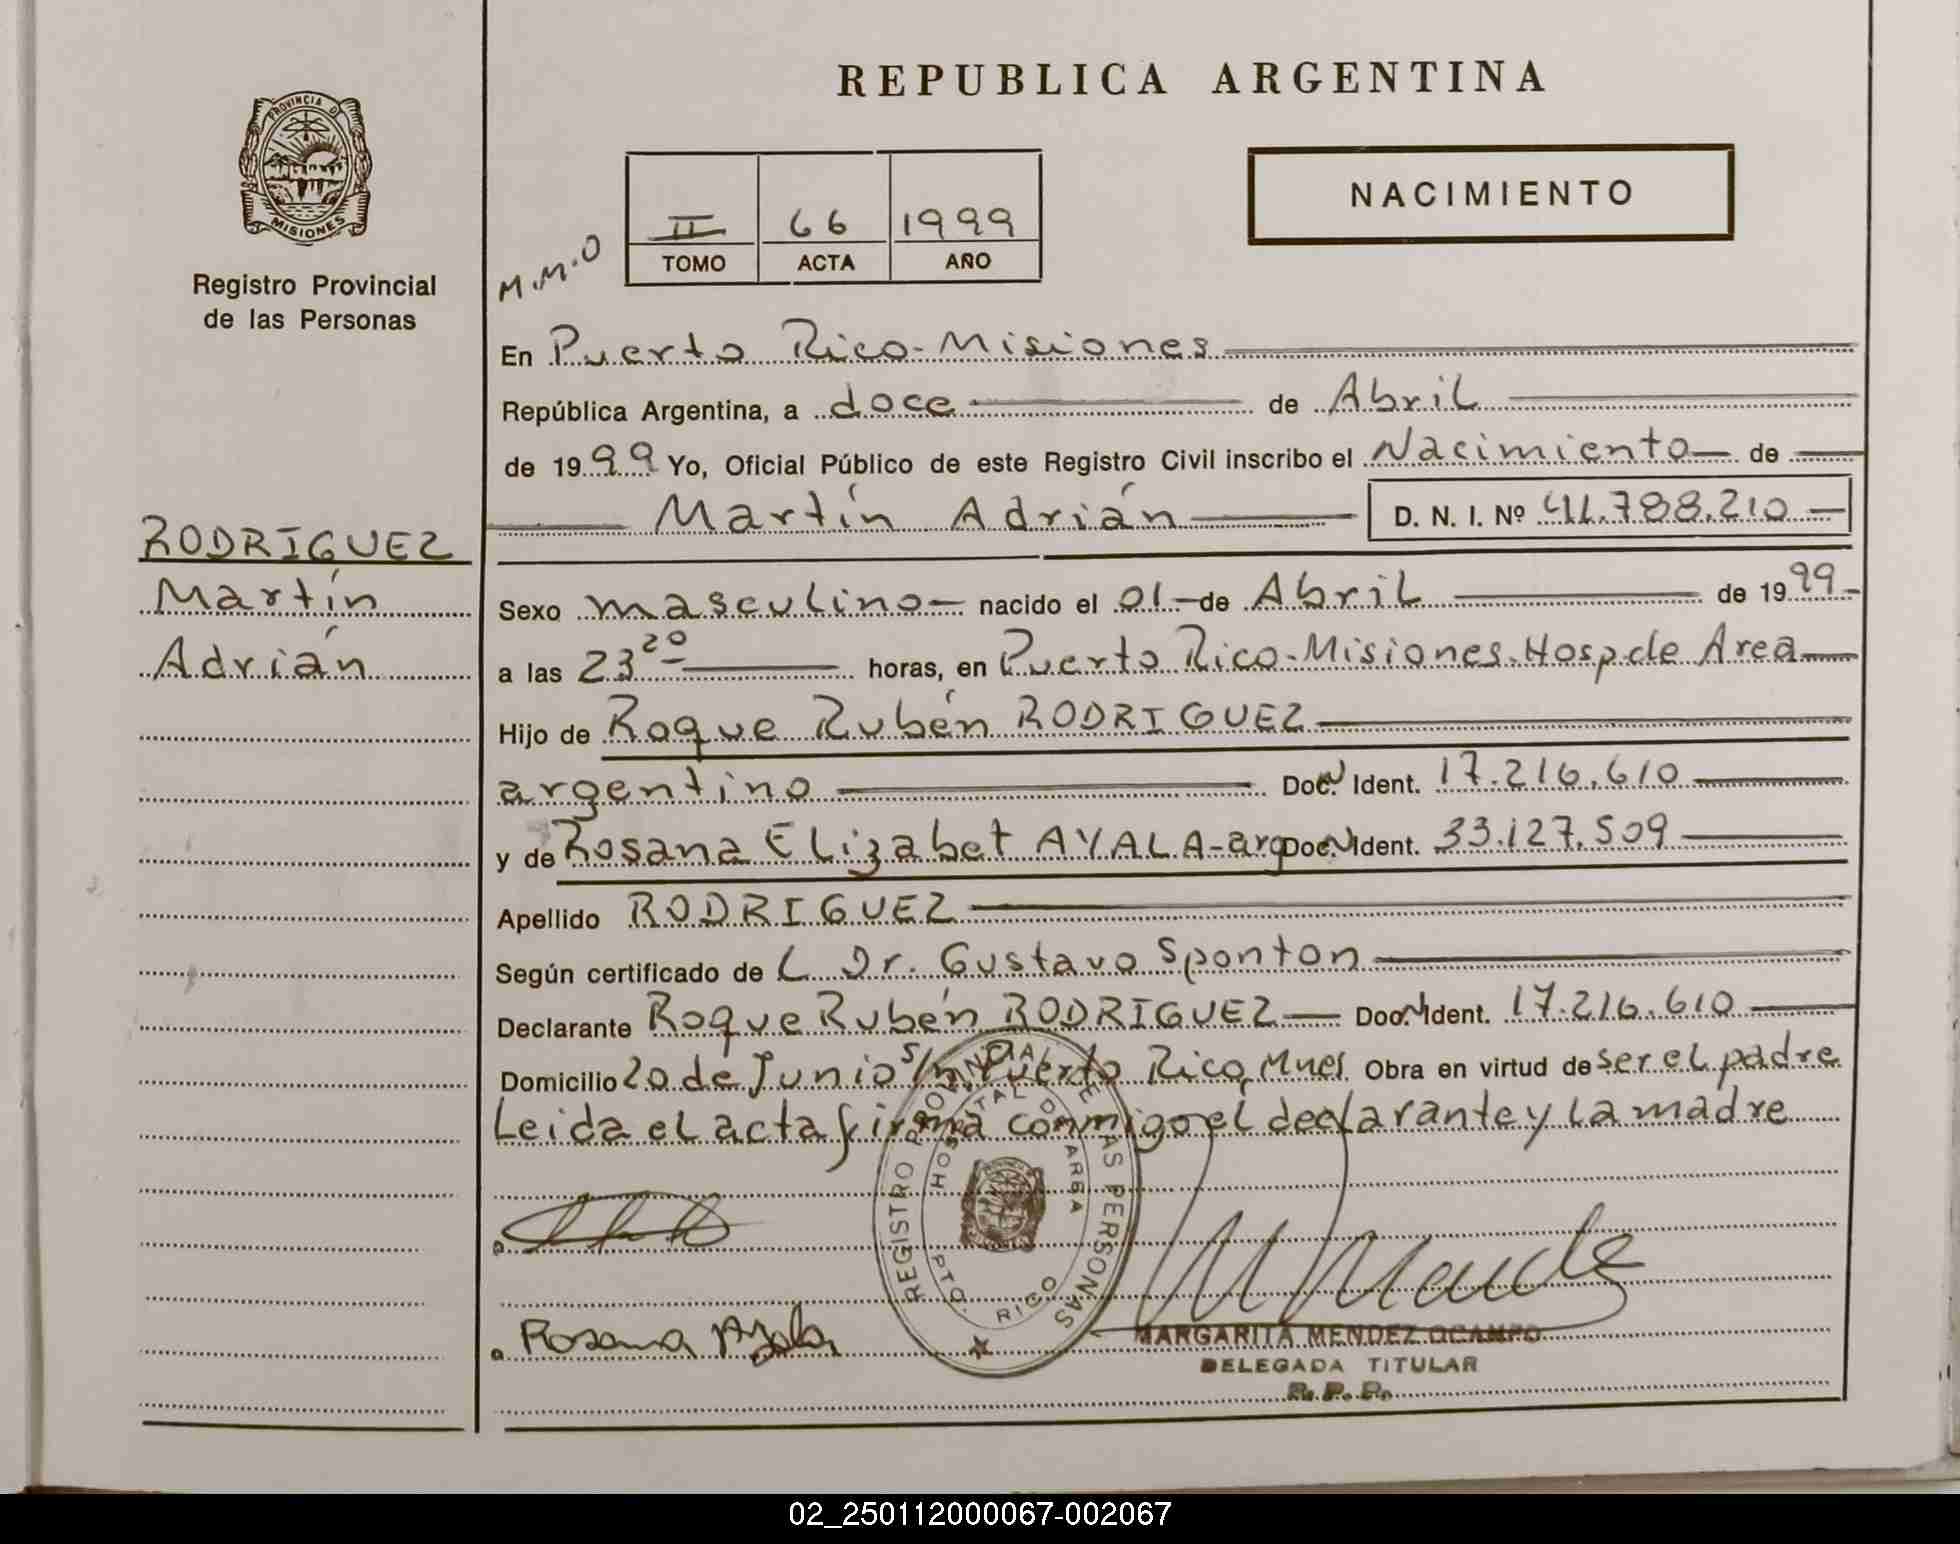 REPUBLICA ARGENTINA
PROVINCIA DE
MISIONES
Registro Provincial
de las Personas
NACIMIENTO
II 66 1999
TOMO ACTA AÑO
M.M.O
En Puerto Rico-Misiones
República Argentina, a doce de Abril
de 1999 Yo, Oficial Público de este Registro Civil inscribo el Nacimiento de
Martín Adrián D. N. I. Nº 41.788.210
RODRIGUEZ
Martín
Adrián
Sexo masculino nacido el 01 de Abril de 1999
a las 23 20 horas, en Puerto Rico-Misiones. Hosp. de Area
Hijo de Roque Rubén RODRIGUEZ
argentino Doc. Ident. 17.216.610
y de Rosana Elizabet AYALA-arg Doc. Ident. 33.127.509
Apellido RODRIGUEZ
Según certificado de L Dr. Gustavo Sponton
Declarante Roque Rubén RODRIGUEZ Doc. Ident. 17.216.610
Domicilio 20 de Junio s/n Puerto Rico, Mnes Obra en virtud de ser el padre
Leida el acta firma conmigo el declarante y la madre
REGISTRO PROVINCIAL DE LAS PERSONAS
HOSPITAL DE AREA
PTO. RICO
Rosana Ayala
MARGARITA MENDEZ OCAMPO
DELEGADA TITULAR
R. P. P.
02_250112000067-002067